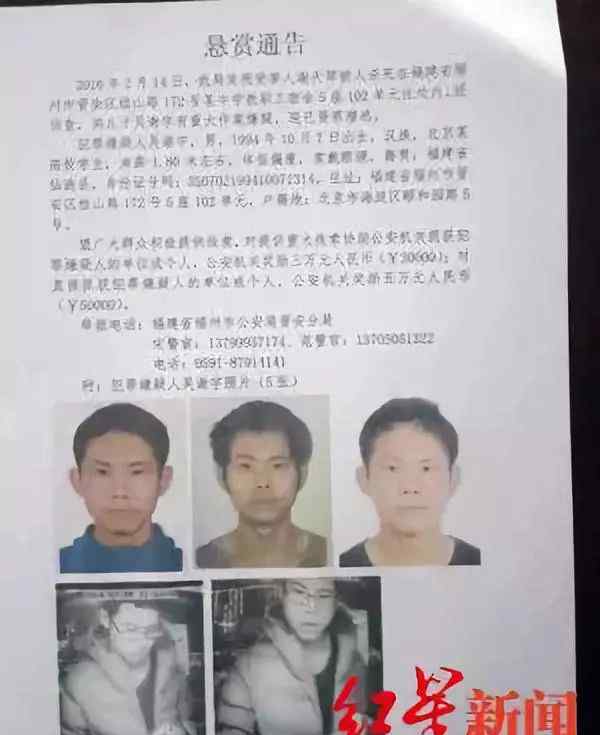 悬赏通告
2016年2月14日，我局发现受害人谢天琴被人杀死在福建省福
州市晋安区桂山路172号某中学教职工宿舍5座102单元住处内。经
侦查，其儿子吴谢宇有重大作案嫌疑，现已畏罪潜逃。
犯罪嫌疑人吴谢宇，男，1994年10月7日出生，汉族，北京某
高校学生，身高1.80米左右，体型偏瘦，常戴眼镜，籍贯：福建省
仙游县，身份证号码： 住址：福建省福州市晋
安区桂山路172号5座102单元，户籍地：北京市海淀区颐和园路5
号。
望广大群众积极提供线索，对提供重大线索协助公安机关抓获犯
罪嫌疑人的单位或个人，公安机关奖励三万元人民币（￥30000）；对
直接抓获犯罪嫌疑人的单位或个人，公安机关奖励五万元人民币
（￥50000）。
举报电话：福建省福州市公安局晋安分局
宋警官：13799937174、范警官：13705051322
电话：0591-87914141
附：犯罪嫌疑人吴谢宇照片（5张）
红星新闻